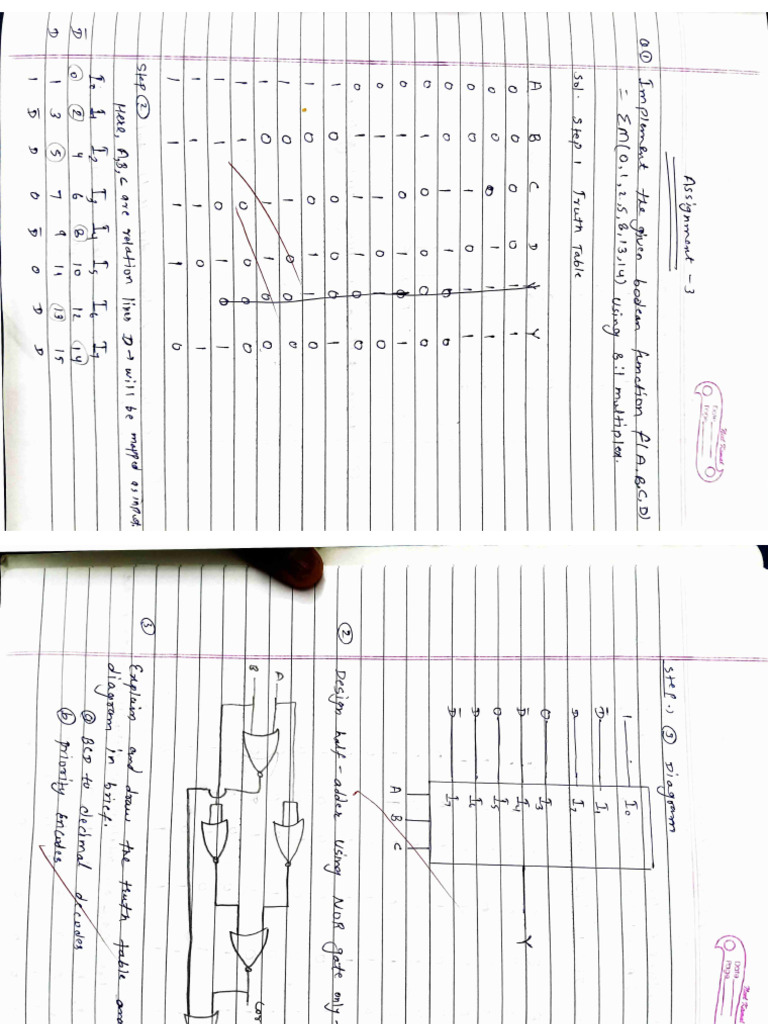 Assignment - 3
Q① Implement the given boolean function f(A,B,C,D)
= ΣM(0,1,2,5,8,13,14) using 8:1 multiplex.
Sol. Step 1 Truth Table
A B C D Y
0 0 0 0 1
0 0 0 1 1
0 0 1 0 1
0 0 1 1 0
0 1 0 0 0
0 1 0 1 1
0 1 1 0 0
0 1 1 1 0
1 0 0 0 1
1 0 0 1 0
1 0 1 0 0
1 0 1 1 0
1 1 0 0 0
1 1 0 1 1
1 1 1 0 1
1 1 1 1 0
Step ②
Here, A,B,C are line D → will be mapped as input
I₀ I₁ I₂ I₃ I₄ I₅ I₆ I₇
D̅ 0 2 4 6 8 10 12 14
D 1 3 5 7 9 11 13 15
1 D̅ D 0 D̅ 0 D D
Step ③ Diagram
1 I₀
D̅ I₁
D I₂
0 I₃
D̅ I₄ Y
0 I₅
D I₆
D̅ I₇
A B C
② Design half-adder using NOR gate only
A
B
③ Explain and draw the truth table and
diagram in brief.
ⓐ BCD to decimal decoder
ⓑ Priority Encoder